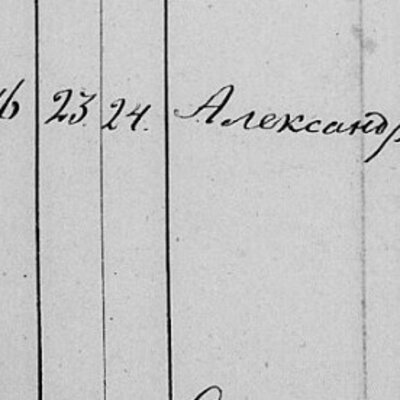 23. 24. Александр